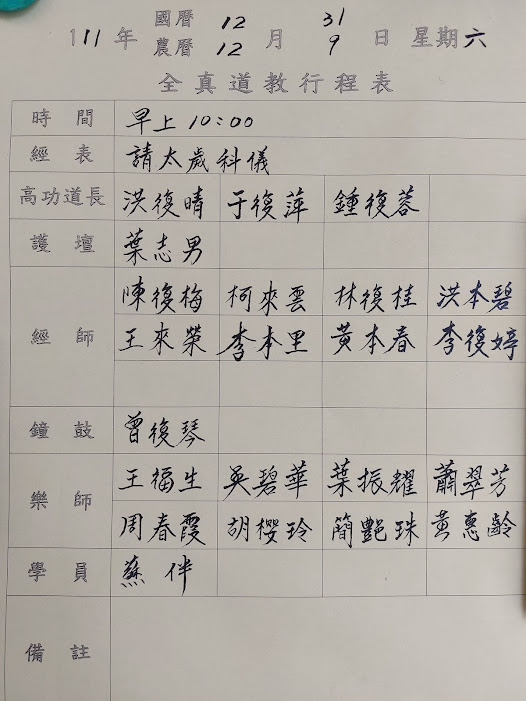 國曆 12 31
111年 月 日 星期六
農曆 12 9
全真道教行程表
時間 早上10:00
經表 請太歲科儀
高功道長 洪復晴 于復萍 鍾復蓉
護壇 葉志男
陳復梅 柯來雲 林復桂 洪本碧
經師 王來榮 李本里 黃本春 李復婷
鐘鼓 曾復琴
王福生 吳碧華 葉振耀 蕭翠芳
樂師 周春霞 胡櫻玲 簡艷珠 黃惠齡
學員 蘇伴
備註